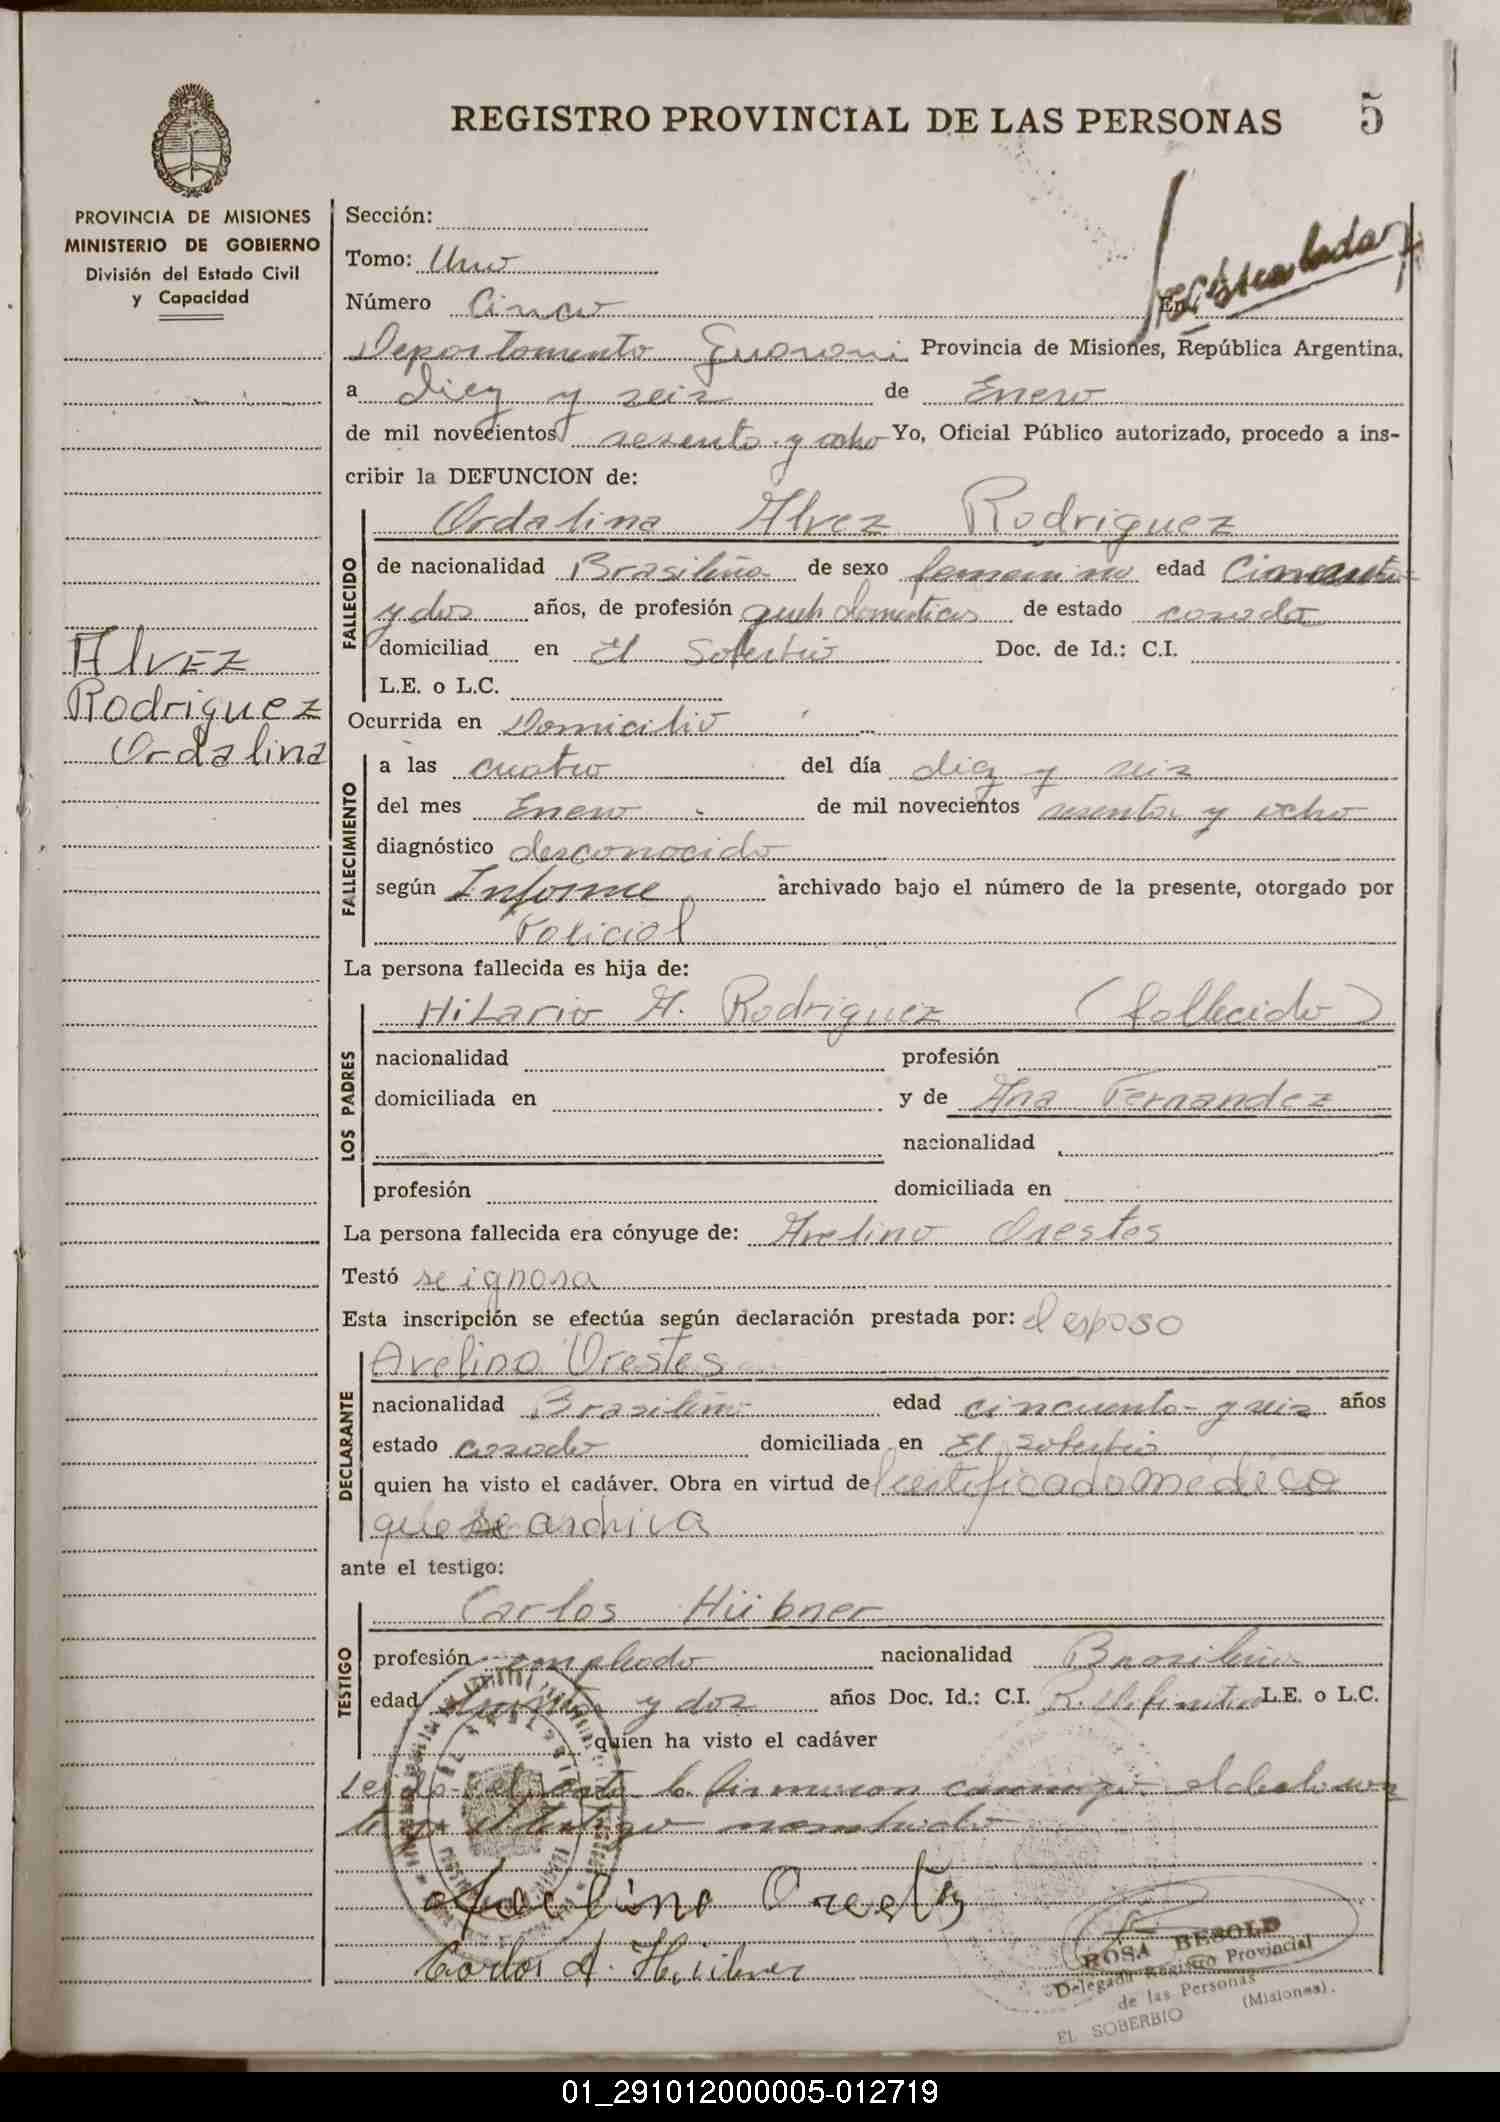 REGISTRO PROVINCIAL DE LAS PERSONAS 5
PROVINCIA DE MISIONES
MINISTERIO DE GOBIERNO
División del Estado Civil
y Capacidad
Alvez
Rodriguez
Ordalina
Sección:
Tomo: Uno
Número Cinco En
Departamento Guarani Provincia de Misiones, República Argentina,
a diez y seis de Enero
de mil novecientos sesenta y ocho Yo, Oficial Público autorizado, procedo a ins-
cribir la DEFUNCION de:
Ordalina Alvez Rodriguez
FALLECIDO
de nacionalidad Brasileña de sexo femenino edad Cincuenta
y dos años, de profesión queh. domesticos de estado casada
domiciliad en El Soberbio Doc. de Id.: C.I.
L.E. o L.C.
Ocurrida en Domicilio
FALLECIMIENTO
a las cuatro del día diez y seis
del mes Enero de mil novecientos sesenta y ocho
diagnóstico desconocido
según Informe archivado bajo el número de la presente, otorgado por
Policial
La persona fallecida es hija de:
LOS PADRES
Hilario A. Rodriguez (fallecido)
nacionalidad profesión
domiciliada en y de Ana Fernandez
nacionalidad
profesión domiciliada en
La persona fallecida era cónyuge de: Avelino Orestes
Testó se ignora
Esta inscripción se efectúa según declaración prestada por: el esposo
DECLARANTE
Avelino Orestes
nacionalidad Brasileño edad cincuenta y seis años
estado casado domiciliada en El Soberbio
quien ha visto el cadáver. Obra en virtud del certificado médico
que se archiva
ante el testigo:
TESTIGO
Carlos Hübner
profesión empleado nacionalidad Brasileño
edad y dos años Doc. Id.: C.I. R. Definitivo L.E. o L.C.
quien ha visto el cadáver
Leida el acta la firmaron conmigo el declaran
te y el testigo nombrado
Avelino Orestes
Carlos A. Hübner
ROSA BESOLD
Delegada Registro Provincial
de las Personas
EL SOBERBIO (Misiones).
01_291012000005-012719